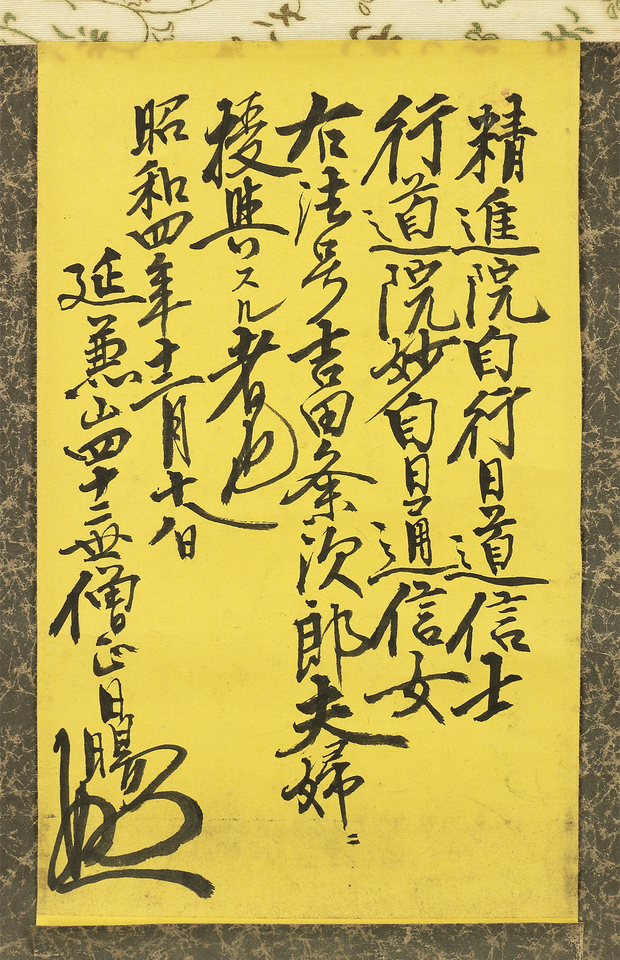 精進院自行日道信士
行道院妙自日通信女
右法号吉田条次郎夫婦ニ
授與スル者也
昭和四年十二月十八日
延兼山四十二世僧正日暘